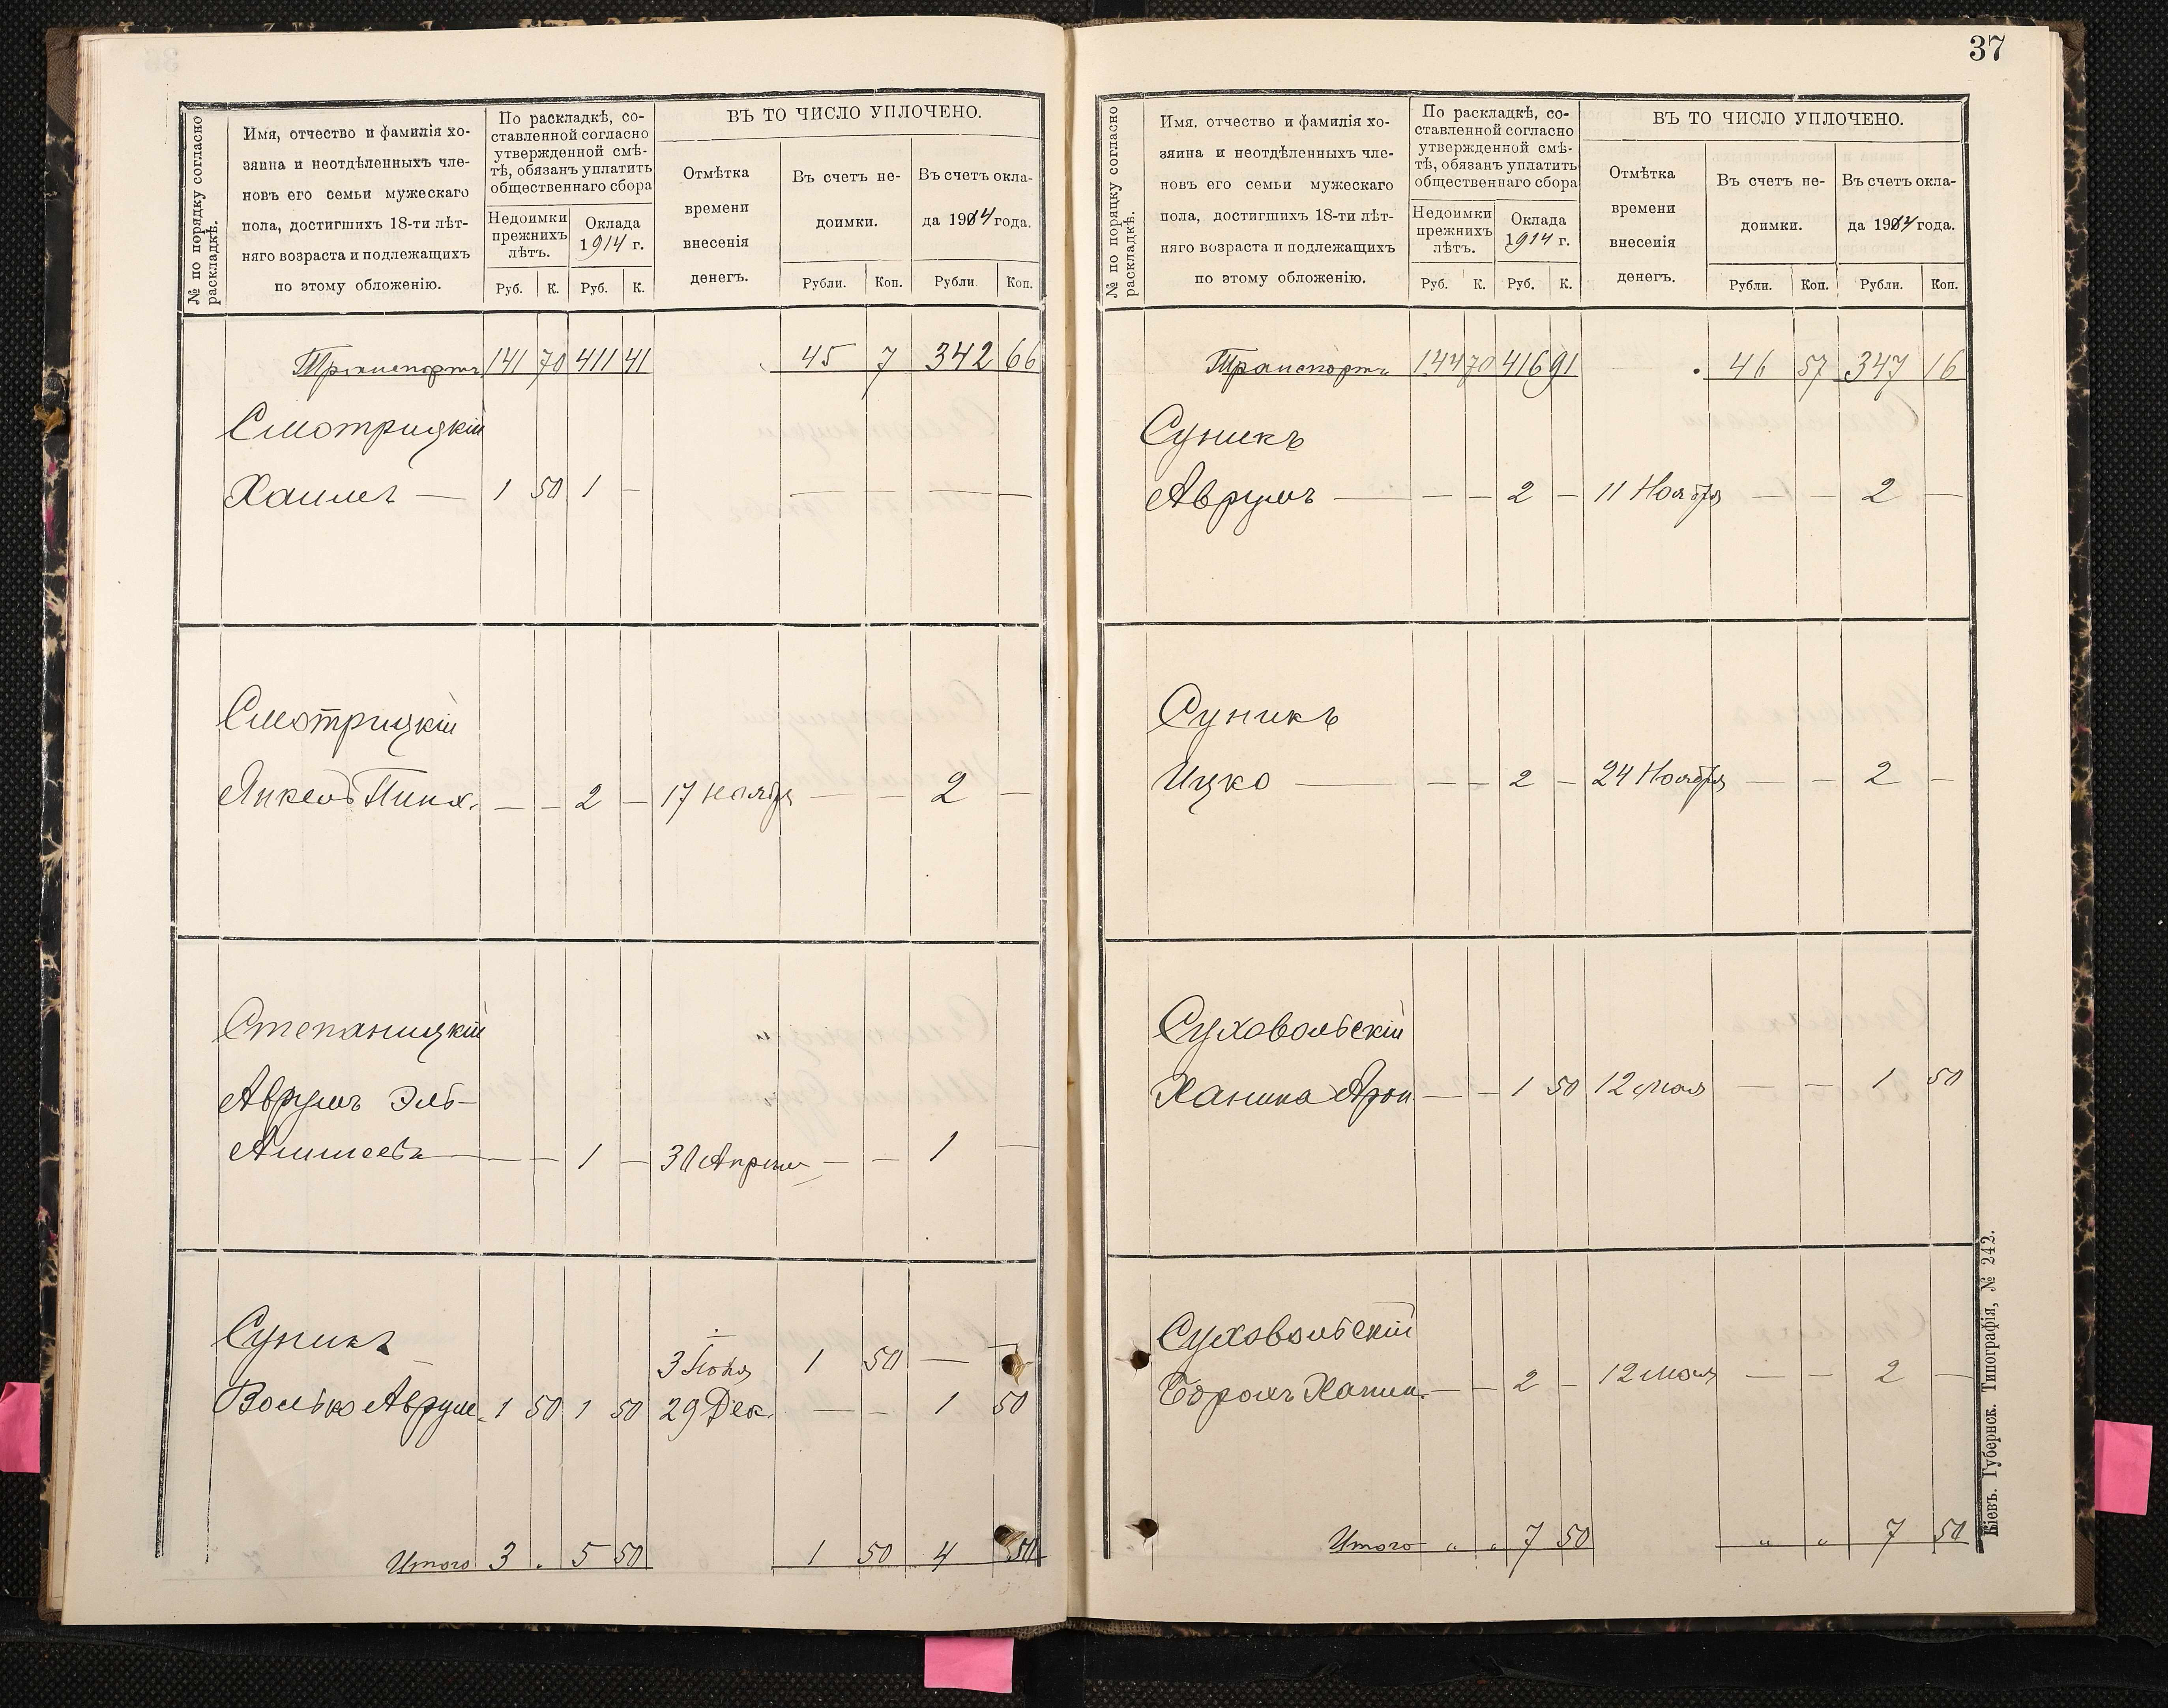 № по порядку согласно
раскладкѣ.
Имя, отчество и фамилія хо-
зяина и неотдѣленныхъ чле-
новъ его семьи мужескаго
пола, достигшихъ 18-ти лѣт-
няго возраста и подлежащихъ
по этому обложенію.
По раскладкѣ, со-
ставленной согласно
утвержденной смѣ-
тѣ, обязанъ уплатить
общественнаго сбора
Недоимки
прежнихъ
лѣтъ.
Оклада
1914 г.
Руб. К. Руб. К.
ВЪ ТО ЧИСЛО УПЛОЧЕНО.
Отмѣтка
времени
внесенія
денегъ.
Въ счетъ не-
доимки.
Въ счетъ окла-
да 1914 года.
Рубли. Коп. Рубли Коп.
Транспортъ 141 70 411 41 45 7 342 66
Смотрицкій
Хаимъ — 1 50 1 — — — — —
Смотрицкій
Янкель Пинх. — — 2 — 17 ноября — — 2 —
Степаницкій
Аврумъ Эль-
— — 1 — 30 Апрѣля — — 1 —
Суникъ
3 Іюня 1 50 — —
Волько Аврум. 1 50 1 50 29 Дек. — — 1 50
Итого 3 . 5 50 1 50 4 50
37
№ по порядку согласно
раскладкѣ.
Имя. отчество и фамилія хо-
зяина и неотдѣленныхъ чле-
новъ его семьи мужескаго
пола, достигшихъ 18-ти лѣт-
няго возраста и подлежащихъ
по этому обложенію.
По раскладкѣ, со-
ставленной согласно
утвержденной смѣ-
тѣ, обязанъ уплатить
общественнаго сбора
Недоимки
прежнихъ
лѣтъ.
Оклада
1914 г.
Руб. К. Руб. К.
ВЪ ТО ЧИСЛО УПЛОЧЕНО.
Отмѣтка
времени
внесенія
денегъ.
Въ счетъ не-
доимки.
Въ счетъ окла-
да 1914 года.
Рубли. Коп. Рубли. Коп.
Транспортъ 144 70 416 91 46 57 347 16
Суникъ
Аврумъ — — — 2 — 11 Ноября — — 2 —
Суникъ
Ицко — — — 2 — 24 Ноября — — 2 —
Суховольскій
Ханина Арон. — — 1 50 12 мая — — 1 50
Суховольскій
Борохъ Ханин. — — 2 — 12 мая — — 2 —
Итого „ „ 7 50 „ „ 7 50
Кіевъ. Губернск. Типографія, № 242.